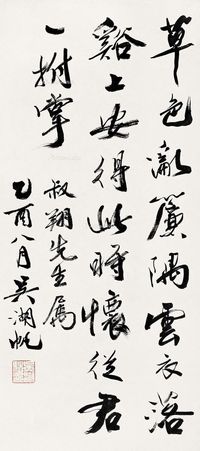 草色瀛簾隅雲衣落
谿上安得此時懷從君
一拊掌
叔翔先生屬
乙酉八月吳湖帆